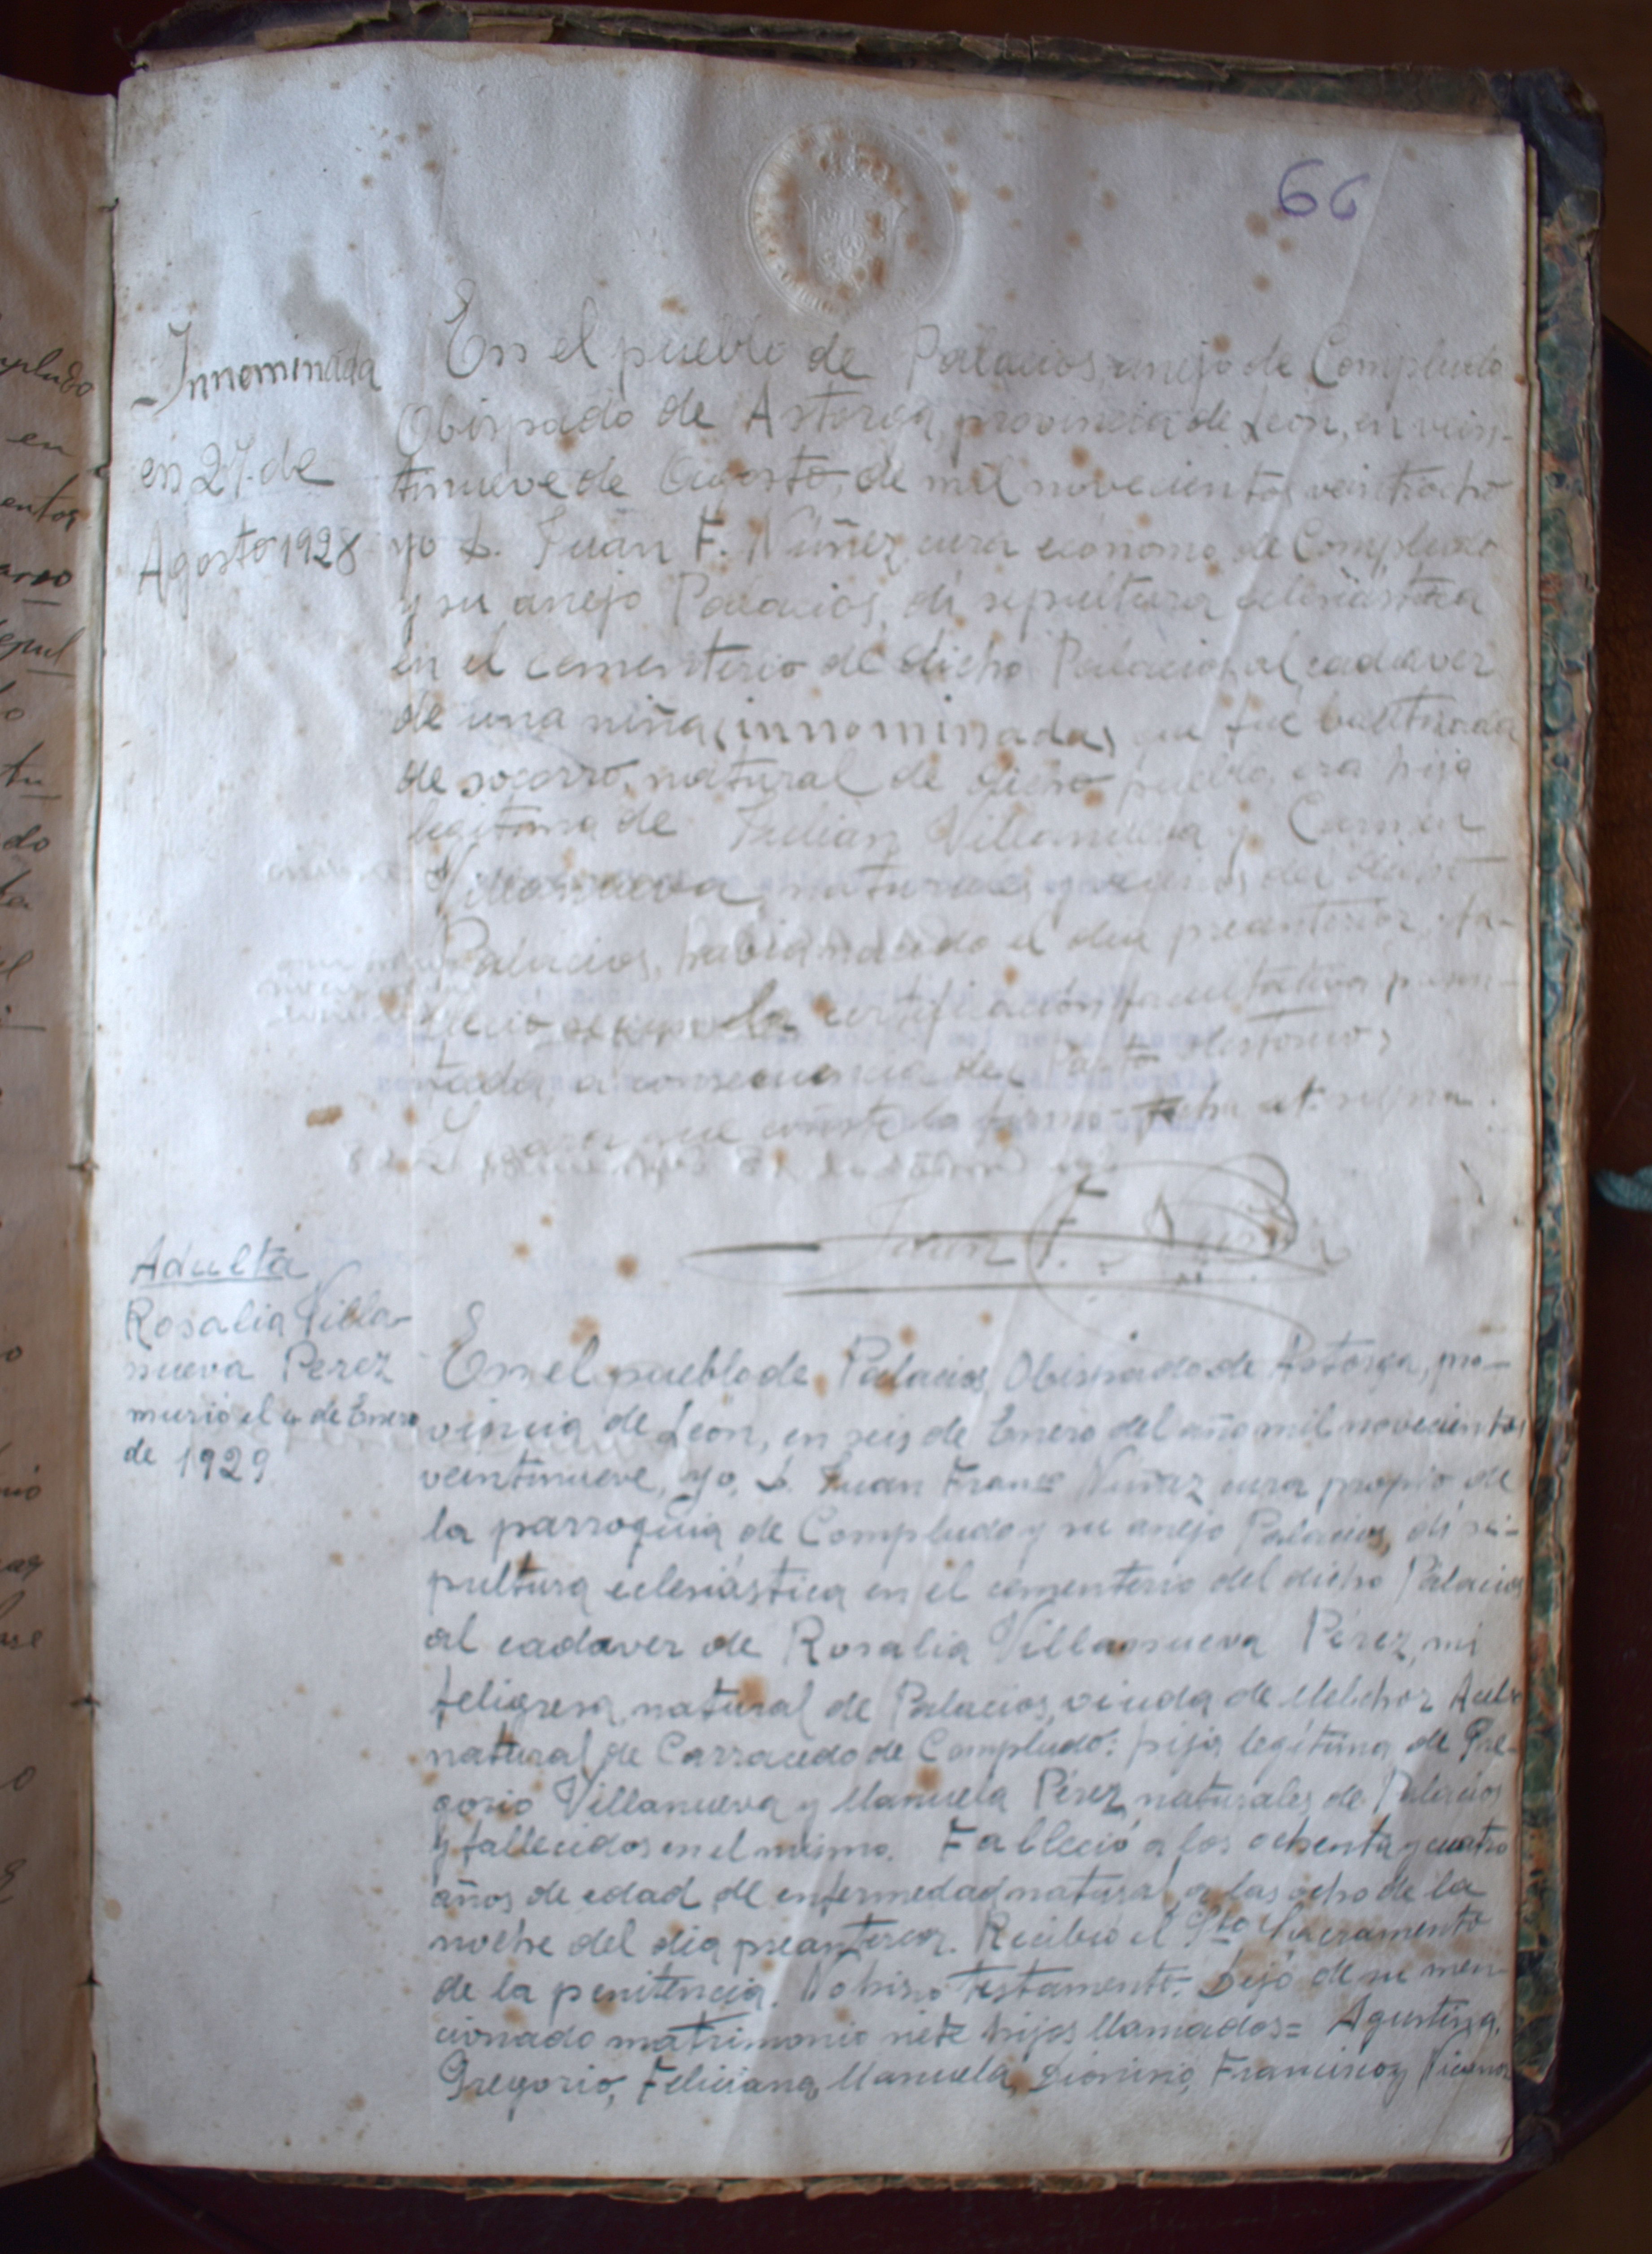 66
Innominada
en 27 de
Agosto 1928
En el pueblo de Palacios, anejo de Compludo
Obispado de Astorga, provincia de León, en vein-
tinueve de Agosto, de mil novecientos veintiocho
yo D. Juan F. Núñez, cura ecónomo de Compludo
y su anejo Palacios, dí sepultura eclesiástica
en el cementerio de dicho Palacios, al cadaver
de una niña, innominada, que fué bautizada
de socorro, natural de dicho pueblo, era hija
legítima de Julián Villanueva y Carmen
Villanueva, naturales y vecinos del dicho
Palacios, había nacido el dia preanterior, fa-
lleció según la certificación facultativa presen-
tada, a consecuencia de parto distócico,
Y para que conste lo firmo fecha ut supra.
Juan F. Núñez
Adulta
Rosalia Villa-
nueva Perez
murió el 4 de Enero
de 1929
En el pueblo de Palacios, Obispado de Astorga, pro-
vincia de León, en seis de Enero del año mil novecientos
veintinueve, yo, D. Juan Franco Núñez cura propio de
la parroquia de Compludo y su anejo Palacios, dí se-
pultura eclesiástica en el cementerio del dicho Palacios
al cadaver de Rosalia Villanueva Pérez, mi
feligresa, natural de Palacios, viuda de Melchor
natural de Carracedo de Compludo: hija legítima de Gre-
gorio Villanueva y Manuela Pérez naturales de Palacios
y fallecidos en el mismo. Falleció a los ochenta y cuatro
años de edad, de enfermedad natural a las ocho de la
noche del dia preanterior. Recibió el Sto Sacramento
de la penitencia. No hizo testamento. Dejó de su men-
cionado matrimonio siete hijos llamados= Agustina,
Gregorio, Feliciana, Manuela, Dionisio, Francisco y Nicanor